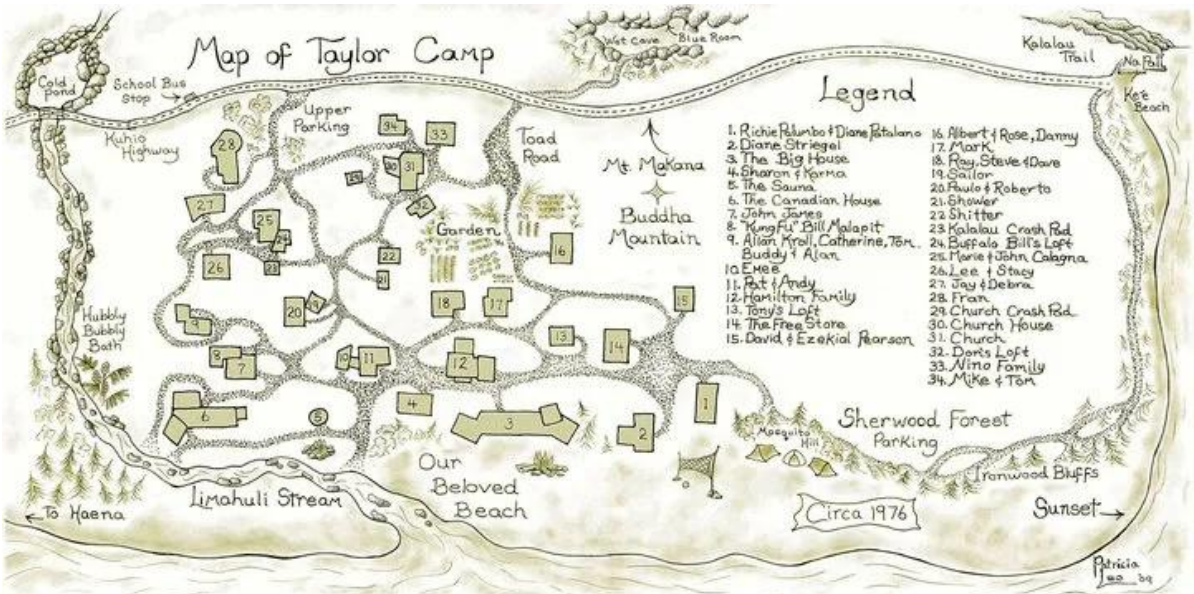 Map of Taylor Camp
Wet Cave
Blue Room
Kalalau
Trail
Na Pali
Ke'e
Beach
Cold
Pond
School Bus
Stop
Kuhio
Highway
Upper
Parking
Toad
Road
Mt. Makana
Buddha
Mountain
Garden
Hubbly
Bubbly
Bath
Legend
1. Richie Palumbo & Diane Patalano
2. Diane Striegel
3. The Big House
4. Sharon & Karma
5. The Sauna
6. The Canadian House
7. John James
8. "Kung Fu" Bill Malapit
9. Allan Kroll, Catherine, Tom,
Buddy & Alan
10. Emee
11. Pat & Andy
12. Hamilton Family
13. Tony's Loft
14. The Free Store
15. David & Ezekial Pearson
16. Albert & Rose, Danny
17. Mark
18. Ray, Steve & Dave
19. Sailor
20. Paulo & Roberto
21. Shower
22. Shitter
23. Kalalau Crash Pad
24. Buffalo Bill's Loft
25. Marie & John Calagna
26. Lee & Stacy
27. Jay & Debra
28. Fran
29. Church Crash Pad
30. Church House
31. Church
32. Dori's Loft
33. Nino Family
34. Mike & Tom
34
33
28
30
31
29
32
27
25
24
26
23
22
21
16
20
19
18
17
15
9
8
7
10
11
12
13
14
6
5
4
3
2
1
Mosquito
Hill
Sherwood Forest
Parking
Ironwood Bluffs
Our
Beloved
Beach
Limahuli Stream
← To Haena
Circa 1976
Sunset →
Patricia
Leo '09